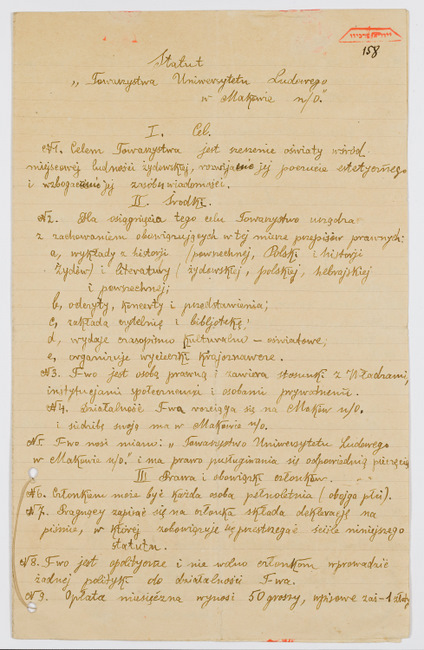 158
Statut
„Towarzystwa Uniwersytetu Ludowego
w Makowie n/O."
I. Cel.
№1. Celem Towarzystwa jest szerzenie oświaty wśród
miejscowej ludności żydowskiej, rozwijanie jej poczucia estetycznego
i wzbogacanie jej zasobu wiadomości.
II. Środki.
№2. Dla osiągnięcia tego celu Towarzystwo urządza
z zachowaniem obowiązujących w tej mierze przepisów prawnych:
a, wykłady z historji (powszechnej, Polski i historji
Żydów) i literatury (żydowskiej, polskiej, hebrajskiej
i powszechnej;
b, odczyty, koncerty i przedstawienia;
c, zakłada czytelnię i bibljotekę;
d, wydaje czasopismo kulturalno-oświatowe;
e, organizuje wycieczki krajoznawcze.
№3. T-wo jest osobą prawną i zawiera stosunki z Władzami,
instytucjami społecznemi i osobami prywatnemi.
№4. Działalność T-wa rozciąga się na Maków n/O.
i siedzibę swoją ma w Makowie n/O.
№5 T-wo nosi miano: „Towarzystwo Uniwersytetu Ludowego
w Makowie n/O." i ma prawo posługiwania się odpowiednią pieczęcią
III Prawa i obowiązki członków.
№6. Członkiem może być każda osoba pełnoletnia (obojga płci).
№7. Pragnący zapisać się na członka składa deklarację na
piśmie, w której zobowiązuje się przestrzegać ściśle niniejszego
statutu.
№8. T-wo jest apolityczne i nie wolno członkom wprowadzić
żadnej polityki do działalności T-wa.
№9. Opłata miesięczna wynosi 50 groszy, wpisowe zaś - 1 złoty